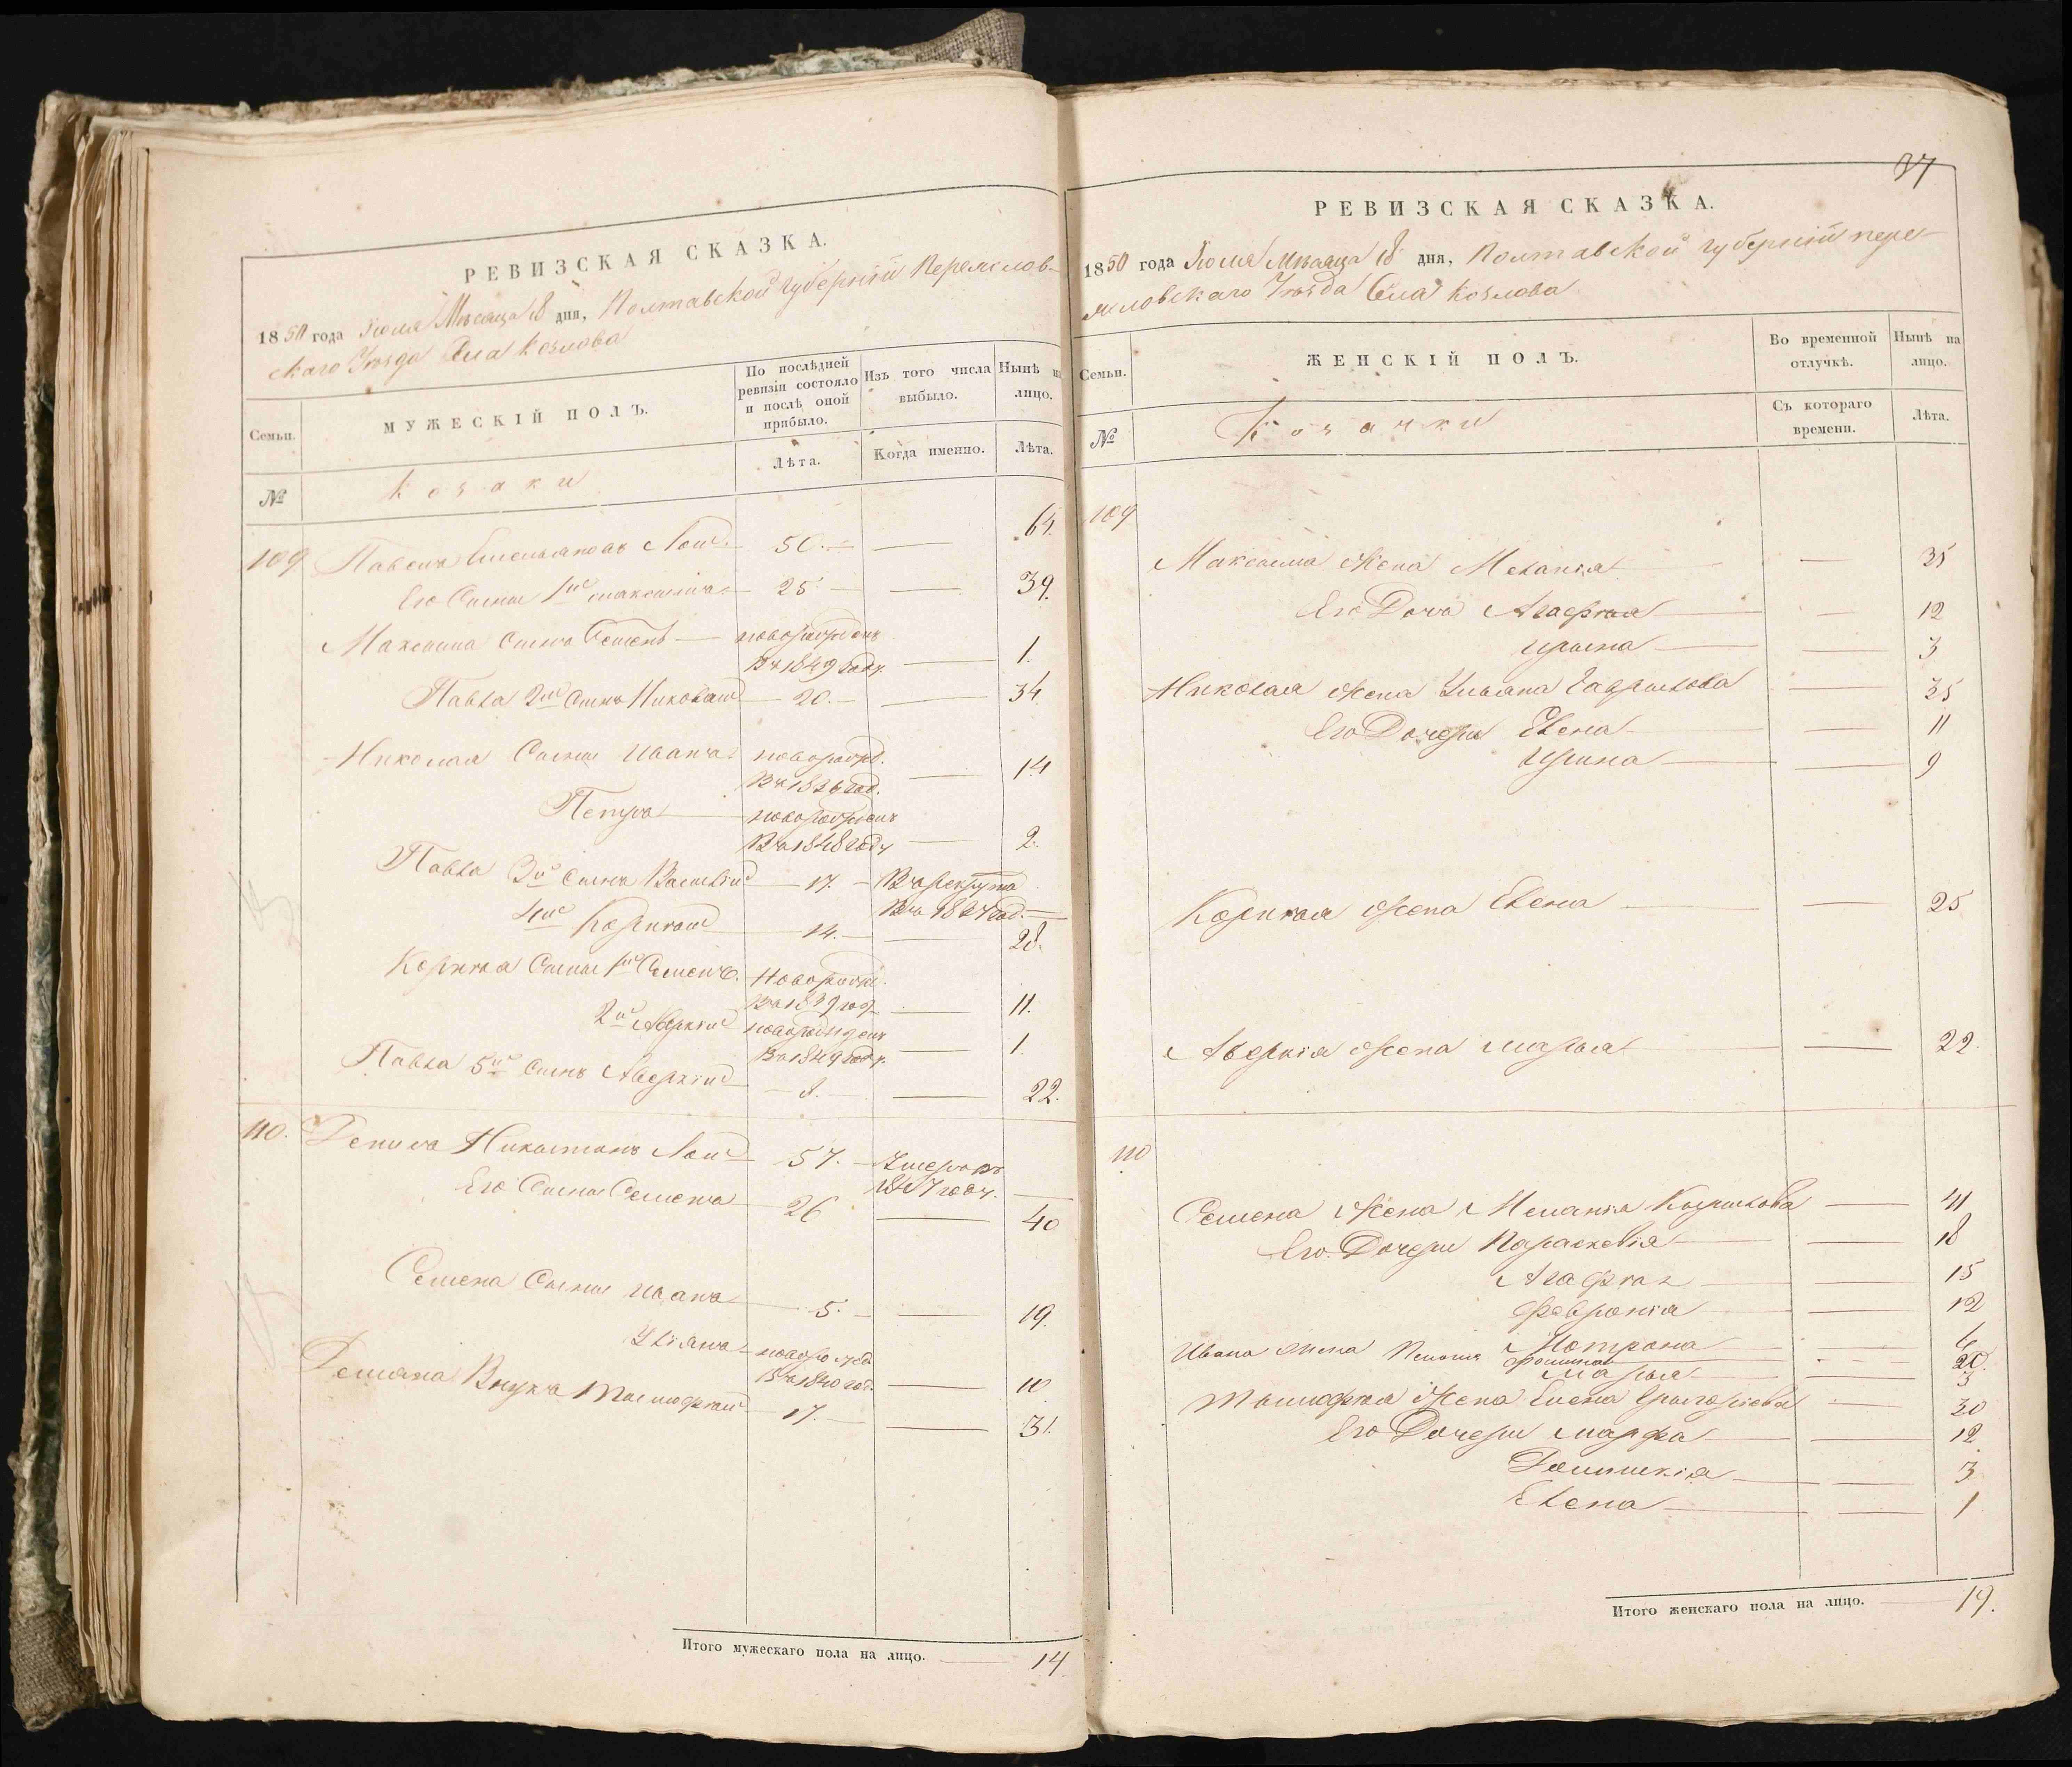 РЕВИЗСКАЯ СКАЗКА.
1850 года Июля Мѣсяца 8 дня, Полтавской Губерніи Переяслов-
скаго Уѣзда Села Козлова
Семьи.
МУЖЕСКІЙ ПОЛЪ.
По послѣдней ревизіи состояло и послѣ оной прибыло.
Изъ того числа выбыло.
Нынѣ на лицо.
Лѣта.
Когда именно.
Лѣта.
№
Козаки
109 Павелъ Емельяновъ 50. — 64.
Его Сыны 1й Максимъ 25 — 39.
Максима Сынъ Семенъ новорожденъ
въ 1849 году — 1.
Павла 2й Сынъ Николай 20. — 34
Николая Сыны Иванъ новорожд.
въ 1836 год. — 14
Петръ новорожденъ
въ 1848 году — 2.
Павла 3й Сынъ Василій 17. — Въ рекрута
въ год.
4й Корнѣй 14. — 28.
Корнѣя Сыны 1й Семенъ. Новорожд.
въ 1839 год. — 11.
2й новорожденъ
въ 1849 году. — 1.
Павла 5й Сынъ Аверкій 8. — 22.
110. Никитинъ 57. — Умеръ въ
1847 году. —
Его Сынъ Семенъ 26 — 40
Семена Сыны Иванъ 5. — 19.
Ульянъ новорожд.
въ 1840 год. — 10
Внукъ Тимофѣй 17. — 31.
Итого мужескаго пола на лицо. — 14
37
РЕВИЗСКАЯ СКАЗКА.
1850 года Июля Мѣсяца 8 дня, Полтавской Губерніи Пере-
яславскаго Уѣзда Села Козлова
Семьи.
ЖЕНСКІЙ ПОЛЪ.
Во временной отлучкѣ.
Нынѣ на лицо.
Съ котораго времени.
Лѣта.
№
Козачки
109
Максима Жена Меланія — 35
Его Дочь Агафія — 12
Ирина — 3
Николая Жена Ульяна Гаврилова — 35
Его Дочери Елена — 11
Ирина — 9
Корнѣя Жена Елена — 25
Аверкія Жена Марья — 22.
110
Семена Жена Меланія Кирилова — 41
Его Дочери Параскевія — 18
Агафія — 15
Февронія — 12
Мотрона — 6
Ивана Жена — 20.
Марья — 3
Тимофѣя Жена Елена Григоріева — 30
Его Дочери Марфа — 12
Домникія — 3
Елена — 1
Итого женскаго пола на лицо. — 19.